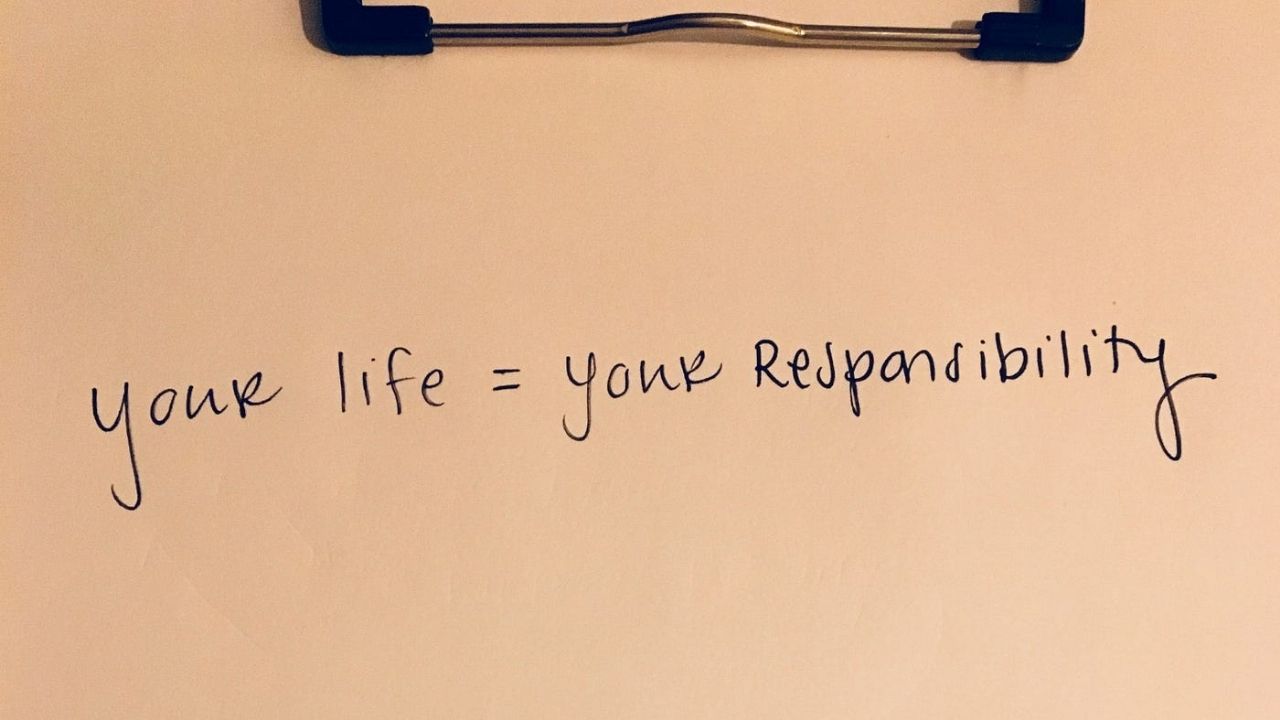 your life = your Responsibility